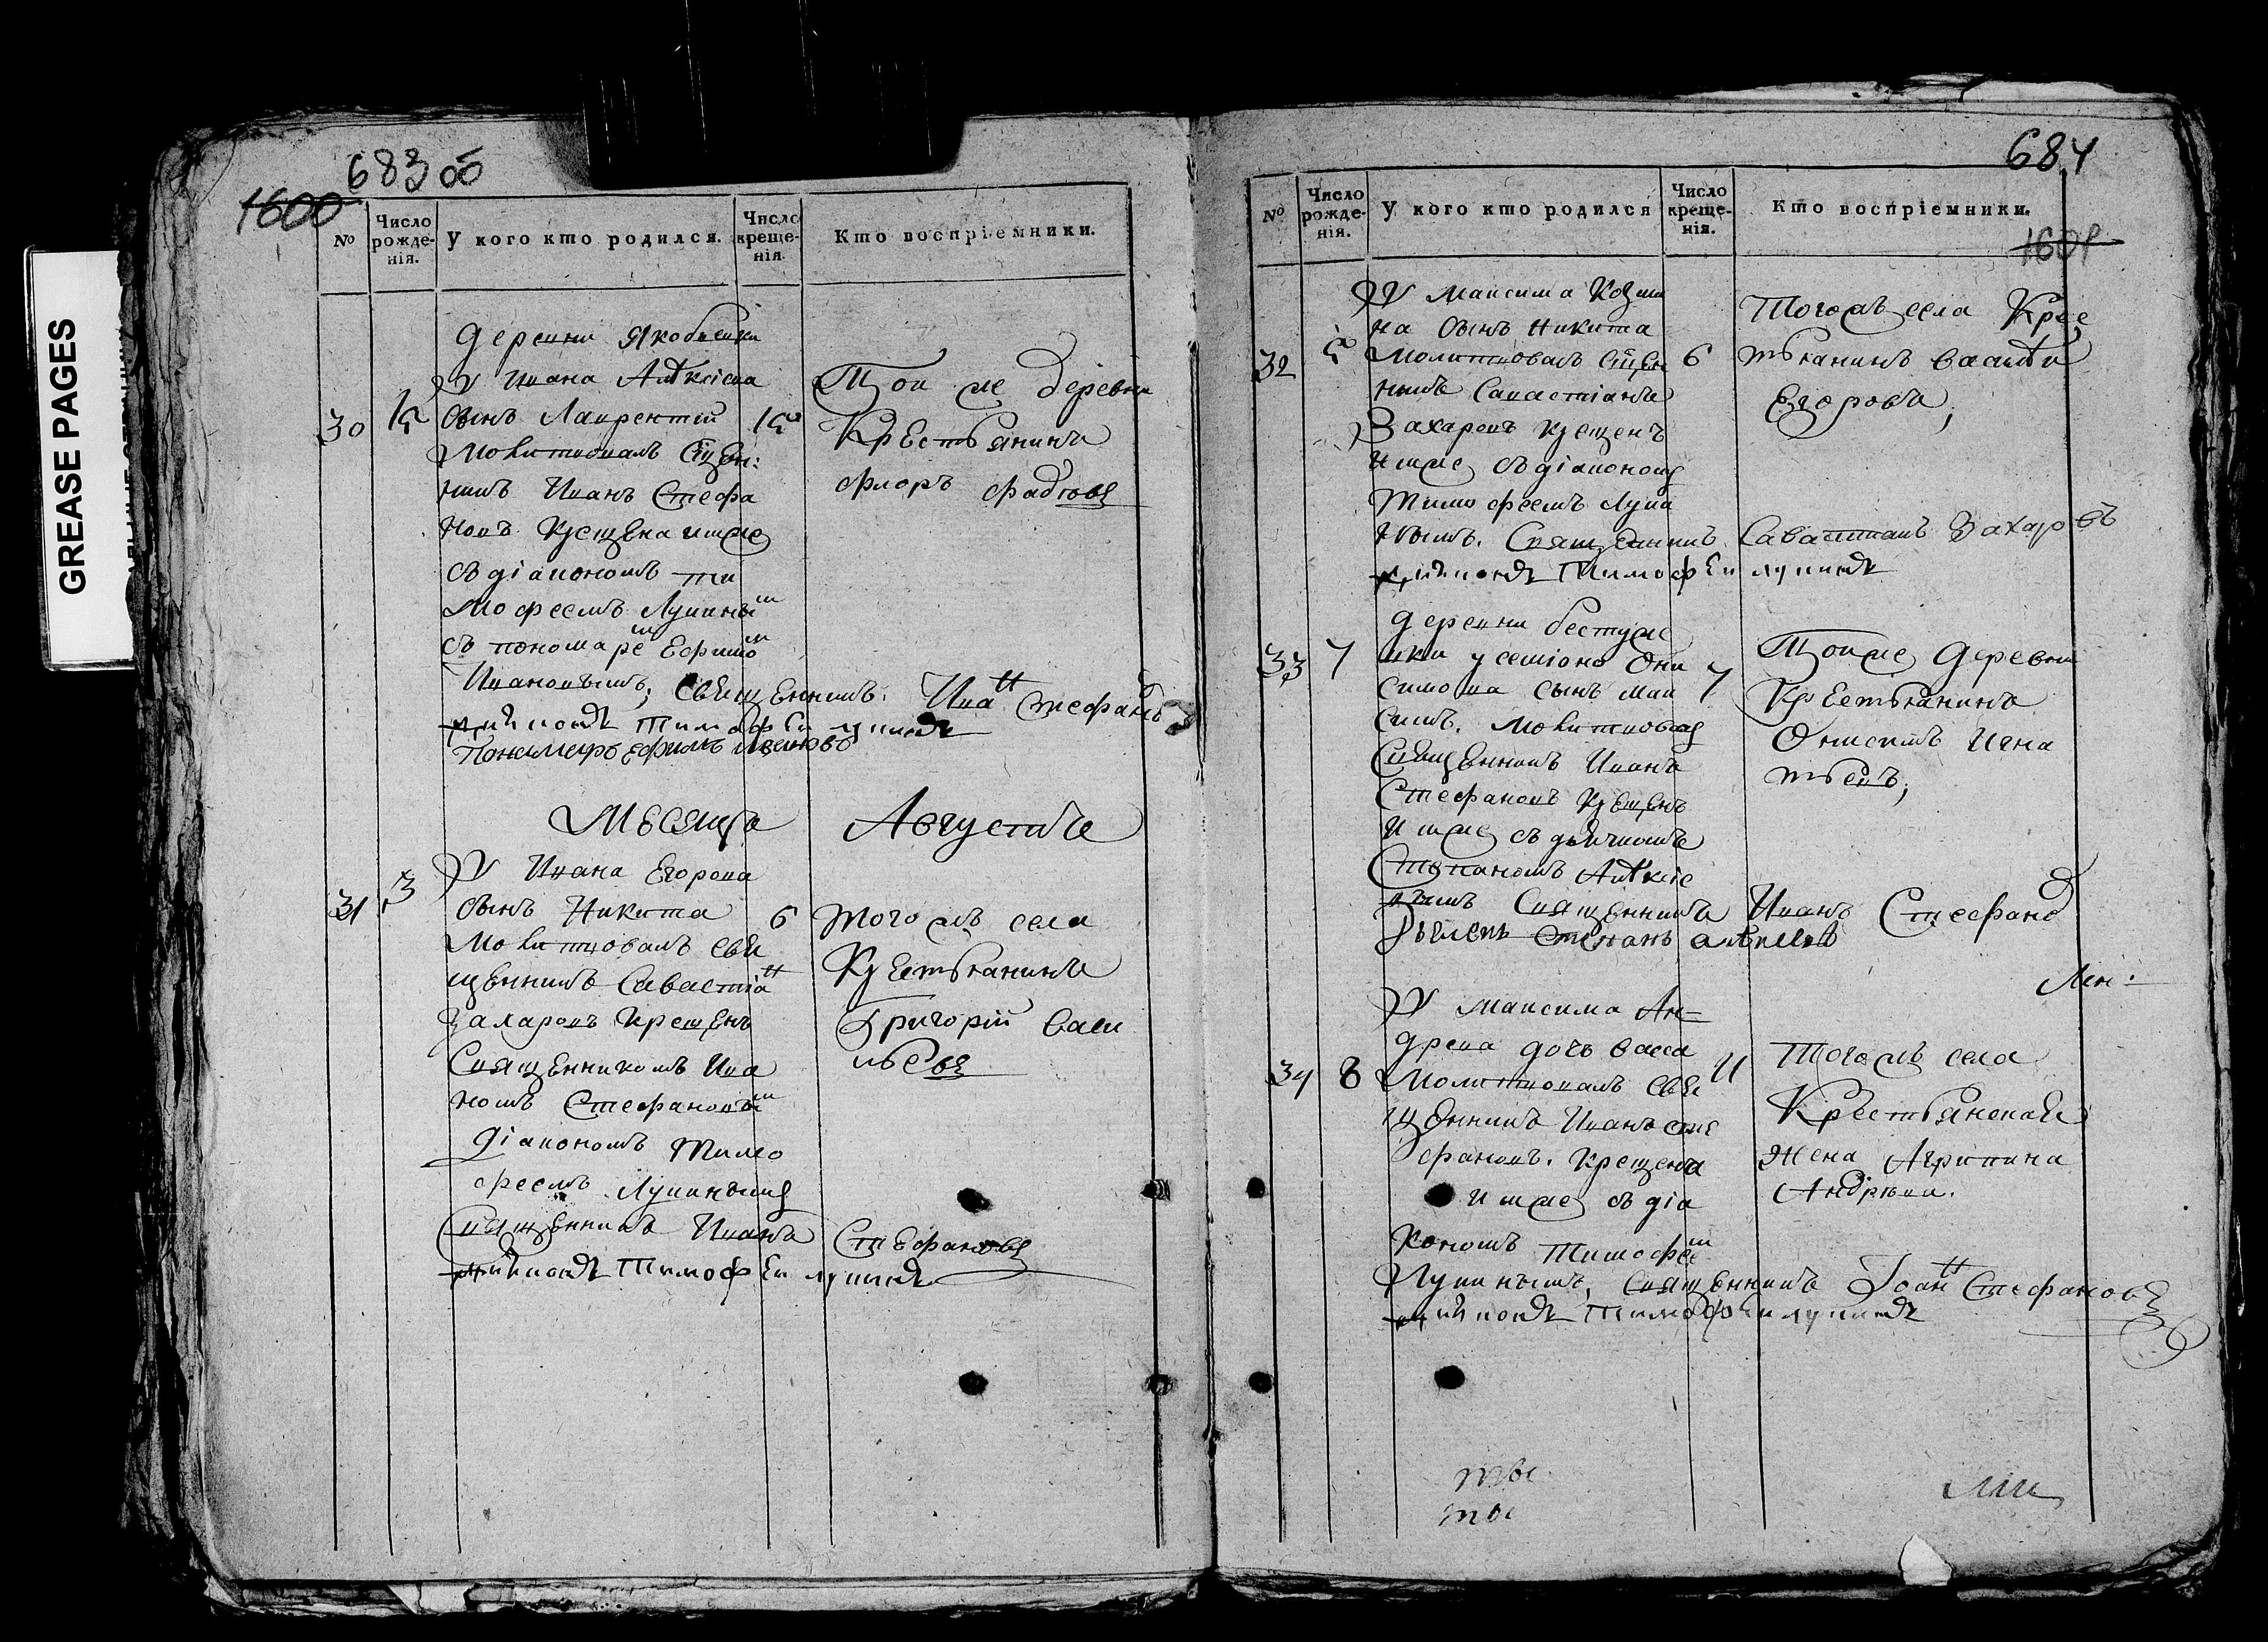 GREASE PAGES
683 об
1600
№
Число рожде-нія.
У кого кто родился.
Число креще-нія.
Кто воспріемники.
деревни
У Ивана Алѣксіева
30
15
сынъ Лаврентій
15
молитвовалъ Сщен:
никъ Иванъ Стефа
новъ крещена имже
съ діакономъ ти
мофеемъ Лупинымъ
съ пономаремъ Ефимомъ
Ивановымъ, священникъ Иванъ Стефановъ
діаконъ Тимофѣи лупинъ
Пономарь Ефимъ Ивановъ
Той же деревни
Крестьянинъ
флоръ фадѣовъ
Мѣсяца Августа
У Ивана Егорова
31
3
сынъ Никита
6
молитвовалъ свя
щенникъ Савастіанъ
Захаровъ крещенъ
Священникомъ Ива
номъ Стефановымъ
діакономъ Тимо
феемъ Лупинымъ
Священникъ Иванъ Стефановъ
діаконъ Тимофѣи лупинъ
Тогожъ села
Крестьянинъ
Григорій Васи
льевъ
684
№
Число рожде-нія.
У кого кто родился
Число креще-нія.
Кто воспріемники.
1601
У Максима Козми
на сынъ Никита
32
5
молитвовалъ Сщен
6
никъ Савастіанъ
Захаровъ крещенъ
имже съ діакономъ
Тимофеемъ Лупи
нымъ. Священникъ Савастіанъ Захаровъ
діаконъ Тимофѣи лупинъ
Тогожъ села Крес
тьянинъ Василѣи
Егоровъ,
деревни бестуже
33
7
вки у семіона Они
симова сынъ мак
7
симъ. молитвовалъ
Священникъ Иванъ
Стефановъ крещенъ
имже съ дьячкомъ
Степаномъ Алѣксіе
вымъ Священникъ Иванъ Стефановъ
Дьячекъ Степанъ алѣксѣевъ
Тойже деревни
Крестьянинъ
Онисимъ Игна
тьевъ,
У Максима Ан-
древа дочь васса
34
8
молитвовалъ свя
11
щенникъ Иванъ сте
фановъ. крещена
имже съ діа
кономъ Тимофеемъ
Лупинымъ, Священникъ Іоаннъ Стефановъ
діаконъ Тимофѣи лупинъ
Тогожъ села
Крестьянская
жена Агрипина
Андрѣва.